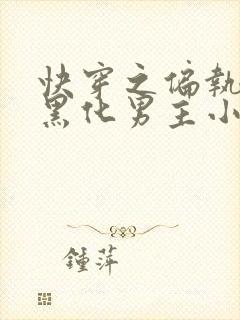 快穿之偏執
黑化男主小
鍾萍